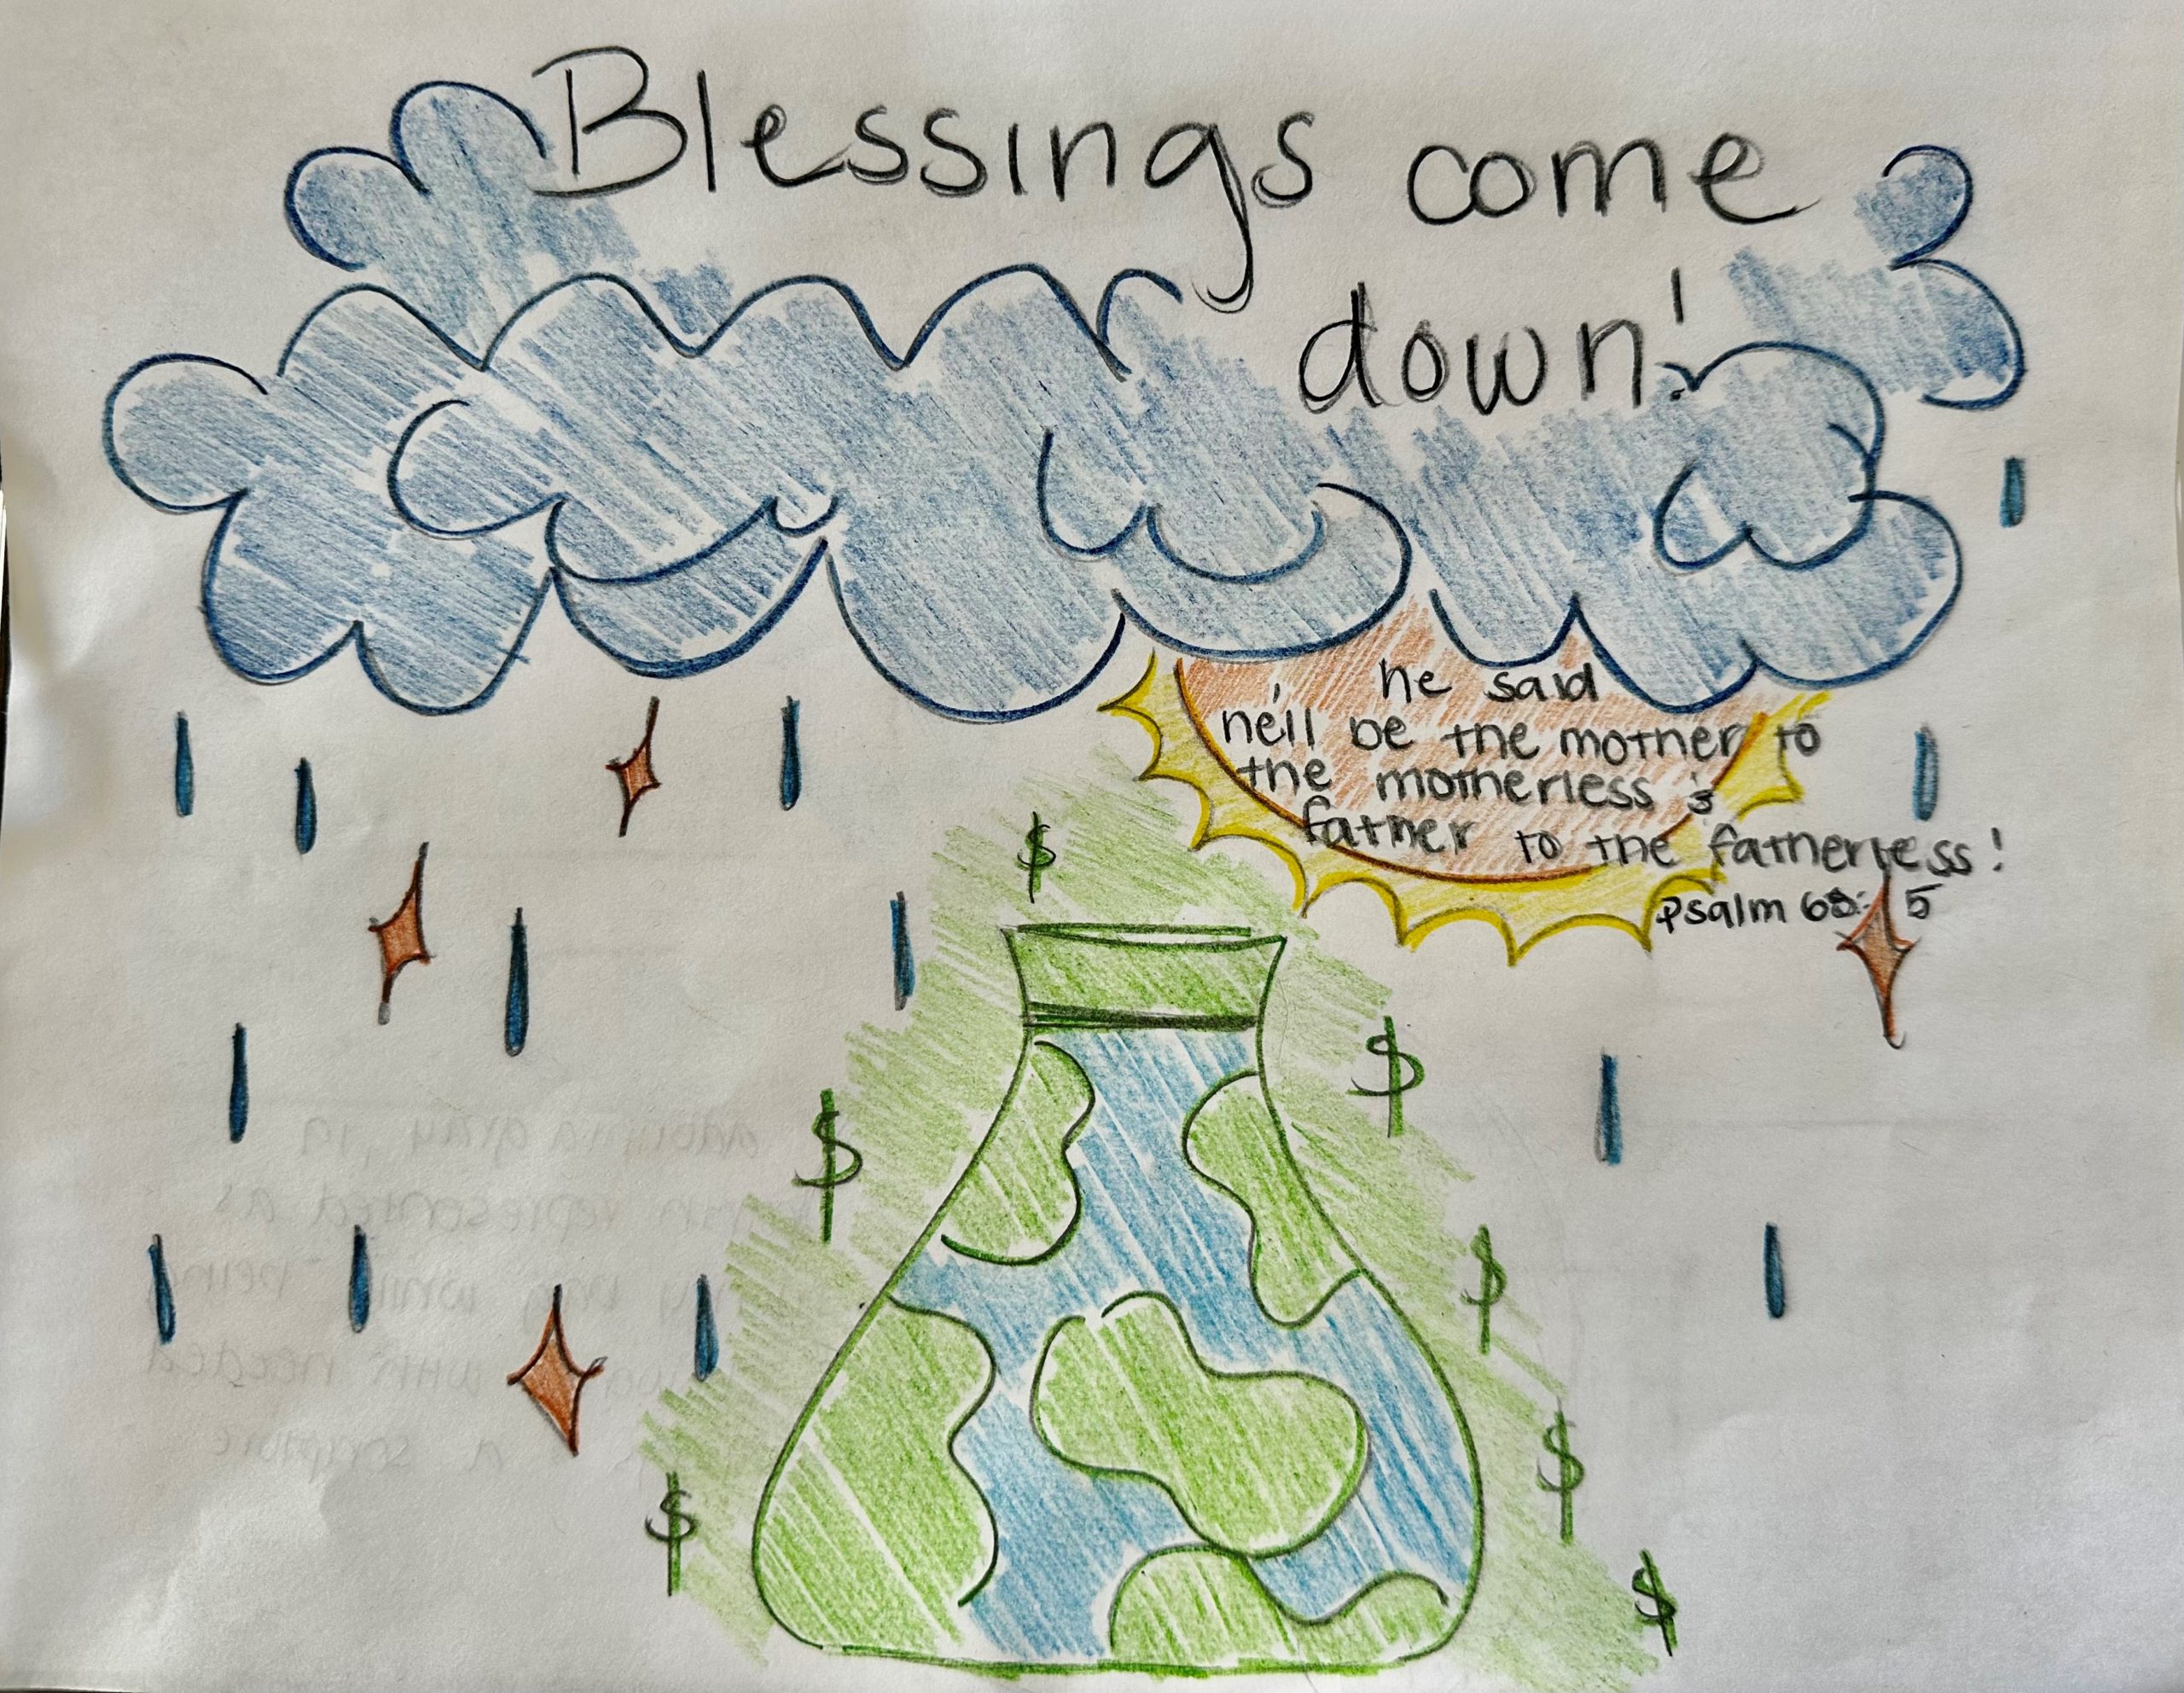 Blessings come
down!
he said
he'll be the mother to
the motherless &
father to the fatherless!
Psalm 68: 5
$
$
$
$
$
$
$